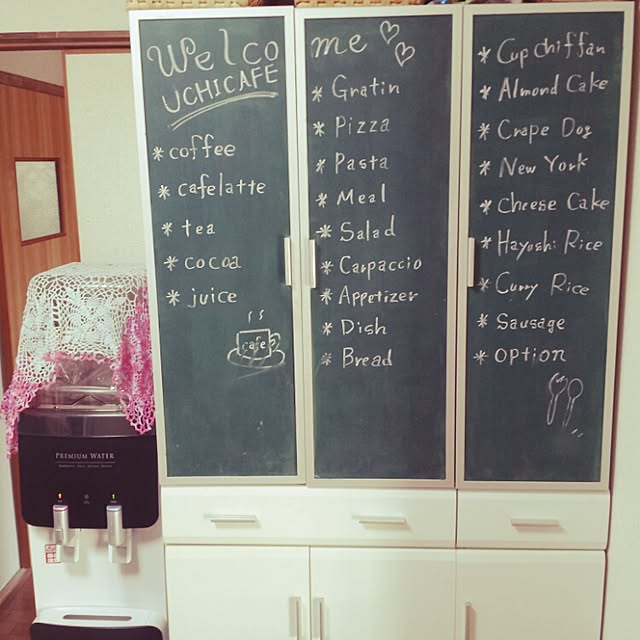 Welcome
UCHICAFE
* coffee
* cafelatte
* tea
* cocoa
* juice
cafe
* Gratin
* Pizza
* Pasta
* Meal
* Salad
* Carpaccio
* Appetizer
* Dish
* Bread
* Cup chiffan
* Almond Cake
* Crape Dog
* New York
* Cheese Cake
* Hayashi Rice
* Curry Rice
* Sausage
* option
PREMIUM WATER